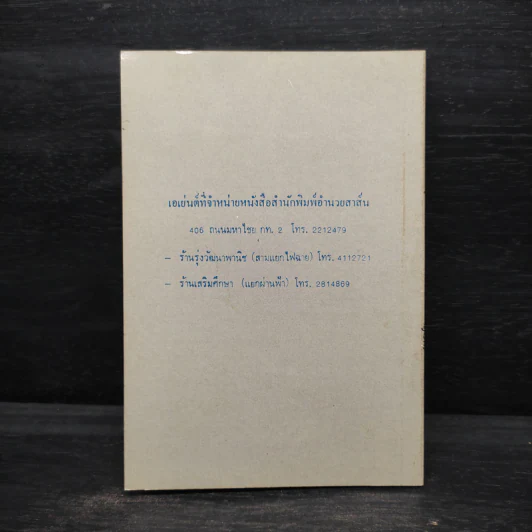 เอเย่นต์ที่จำหน่ายหนังสือสำนักพิมพ์อำนวยสาส์น
406 ถนนมหาไชย กท. 2 โทร. 2212479
– ร้านรุ่งวัฒนาพานิช (สามแยกไฟฉาย) โทร. 4112721
– ร้านเสริมศึกษา (แยกผ่านฟ้า) โทร. 2814869